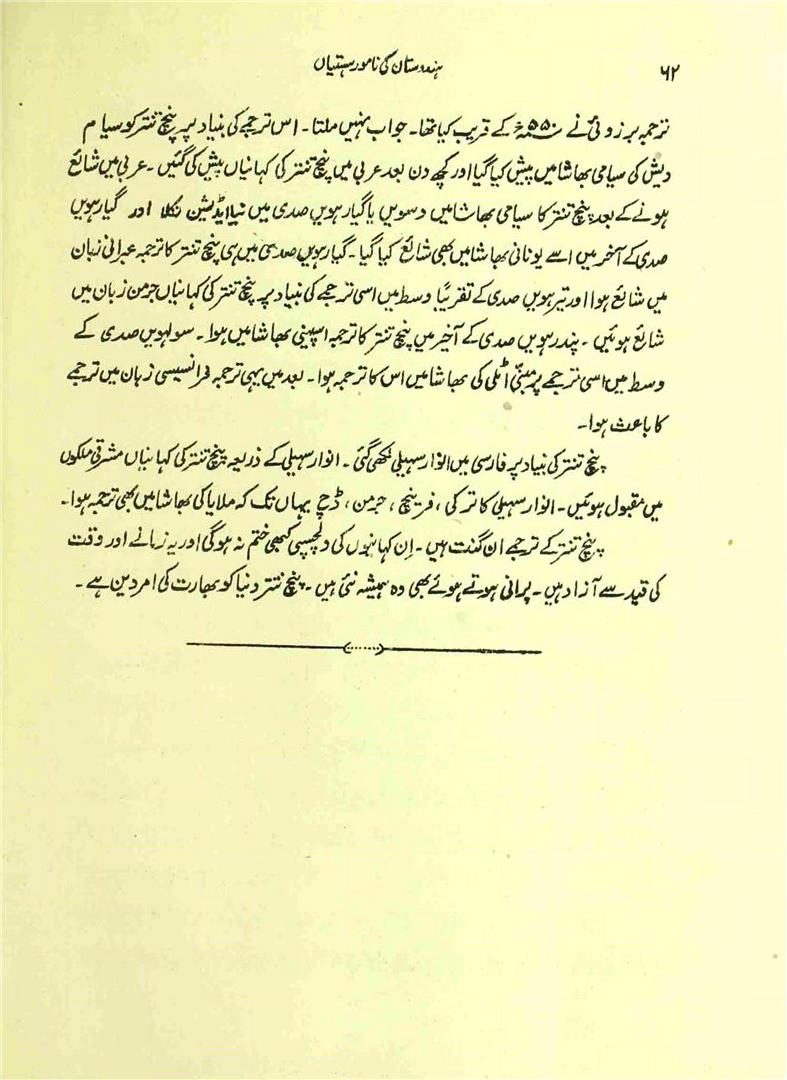 ۶۲
ہندوستان کی نامور ہستیاں
ترجمہ برزوئی نے ۵۵۰ء کے قریب کیا تھا۔ جواب نہیں ملتا۔ اس ترجمے کی بنیاد پر پنچ تنتر کو سیام
دیش کی سیامی بھاشا میں پیش کیا گیا اور کچھ دن بعد عربی میں پنچ تنتر کی کہانیاں پیش کی گئیں۔ عربی میں شائع
ہونے کے بعد پنچ تنتر کا سیامی بھاشا میں دسویں یا گیارہویں صدی میں نیا ایڈیشن نکلا اور گیارہویں
صدی کے آخر میں اسے یونانی بھاشا میں بھی شائع کیا گیا۔ گیارہویں صدی میں ہی پنچ تنتر کا ترجمہ عبرانی زبان
میں شائع ہوا اور تیرہویں صدی کے تقریباً وسط میں اسی ترجمے کی بنیاد پر پنچ تنتر کی کہانیاں جرمن زبان میں
شائع ہوئیں۔ پندرہویں صدی کے آخیر میں پنچ تنتر کا ترجمہ اسپینی بھاشا میں ہوا۔ سولہویں صدی کے
وسط میں اسی ترجمے پر مبنی اٹلی کی بھاشا میں اس کا ترجمہ ہوا۔ بعد میں یہی ترجمہ فرانسیسی زبان میں ترجمے
کا باعث ہوا۔
پنچ تنتر کی بنیاد پر فارسی میں انوار سہیلی لکھی گئی۔ انوار سہیلی کے ذریعہ پنچ تنتر کی کہانیاں مشرقی ملکوں
میں مقبول ہوئیں۔ انوار سہیلی کا ترکی، فرینچ، جرمن، ڈچ یہاں تک کہ ملایا کی بھاشا میں بھی ترجمہ ہوا۔
پنچ تنتر کے ترجمے ان گنت ہیں۔ اِن کہانیوں کی دلچسپی کبھی ختم نہ ہوگی اور یہ زمانے اور وقت
کی قید سے آزاد ہیں۔ پرانی ہوتے ہوئے بھی وہ ہمیشہ نئی ہیں۔ پنچ تنتر دنیا کو بھارت کی امر دین ہے۔